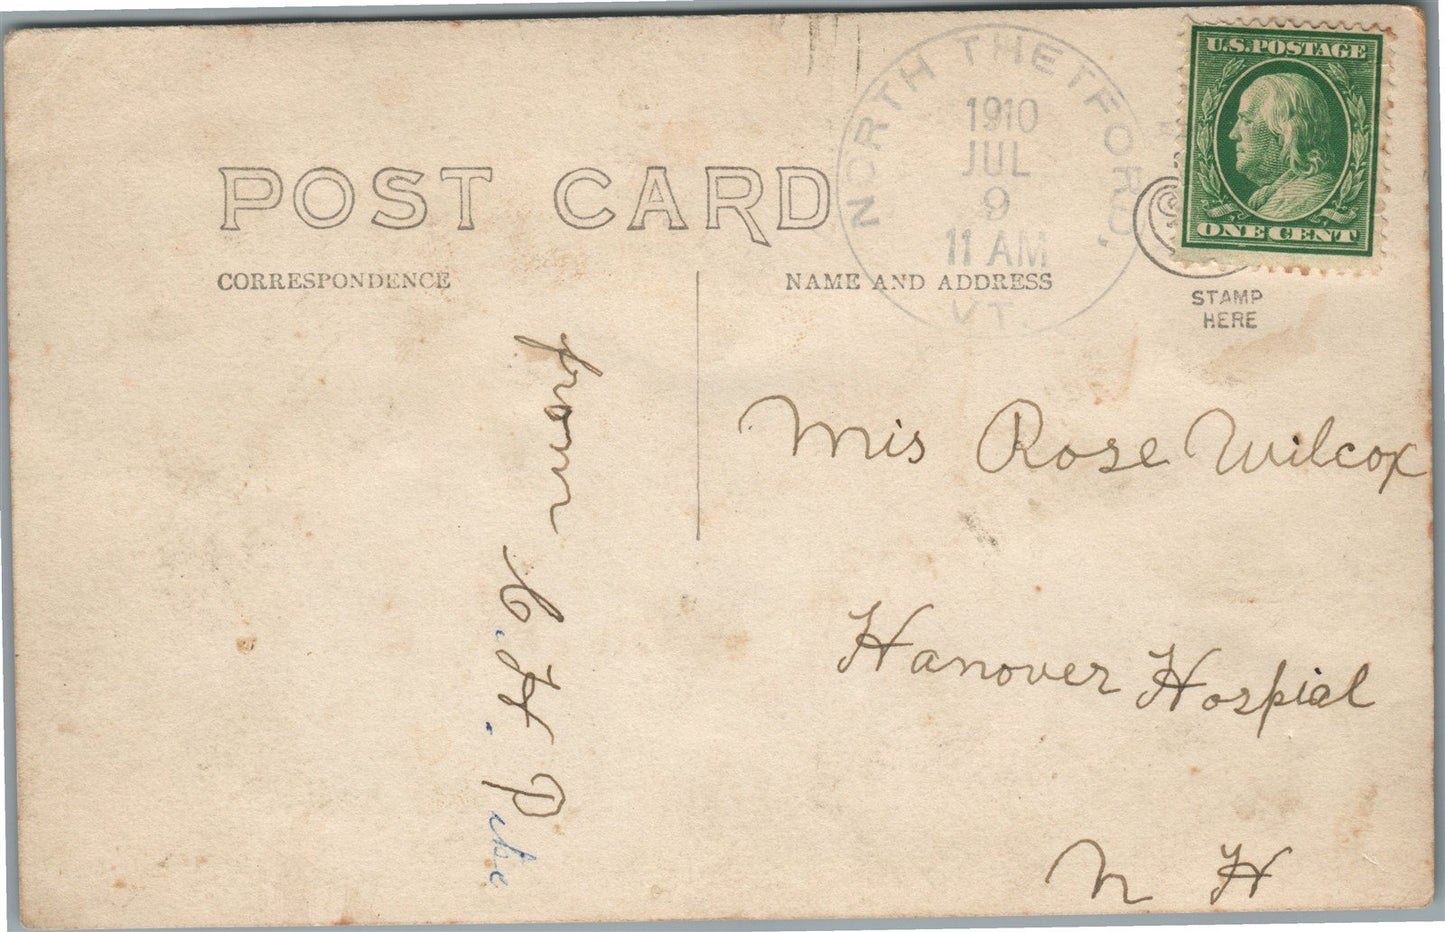 POST CARD
CORRESPONDENCE
NAME AND ADDRESS
NORTH THETFORD,
1910
JUL
9
11 AM
VT.
U.S. POSTAGE
ONE CENT
STAMP
HERE
from C. H. P
Mis Rose Wilcox
Hanover Hospial
N H